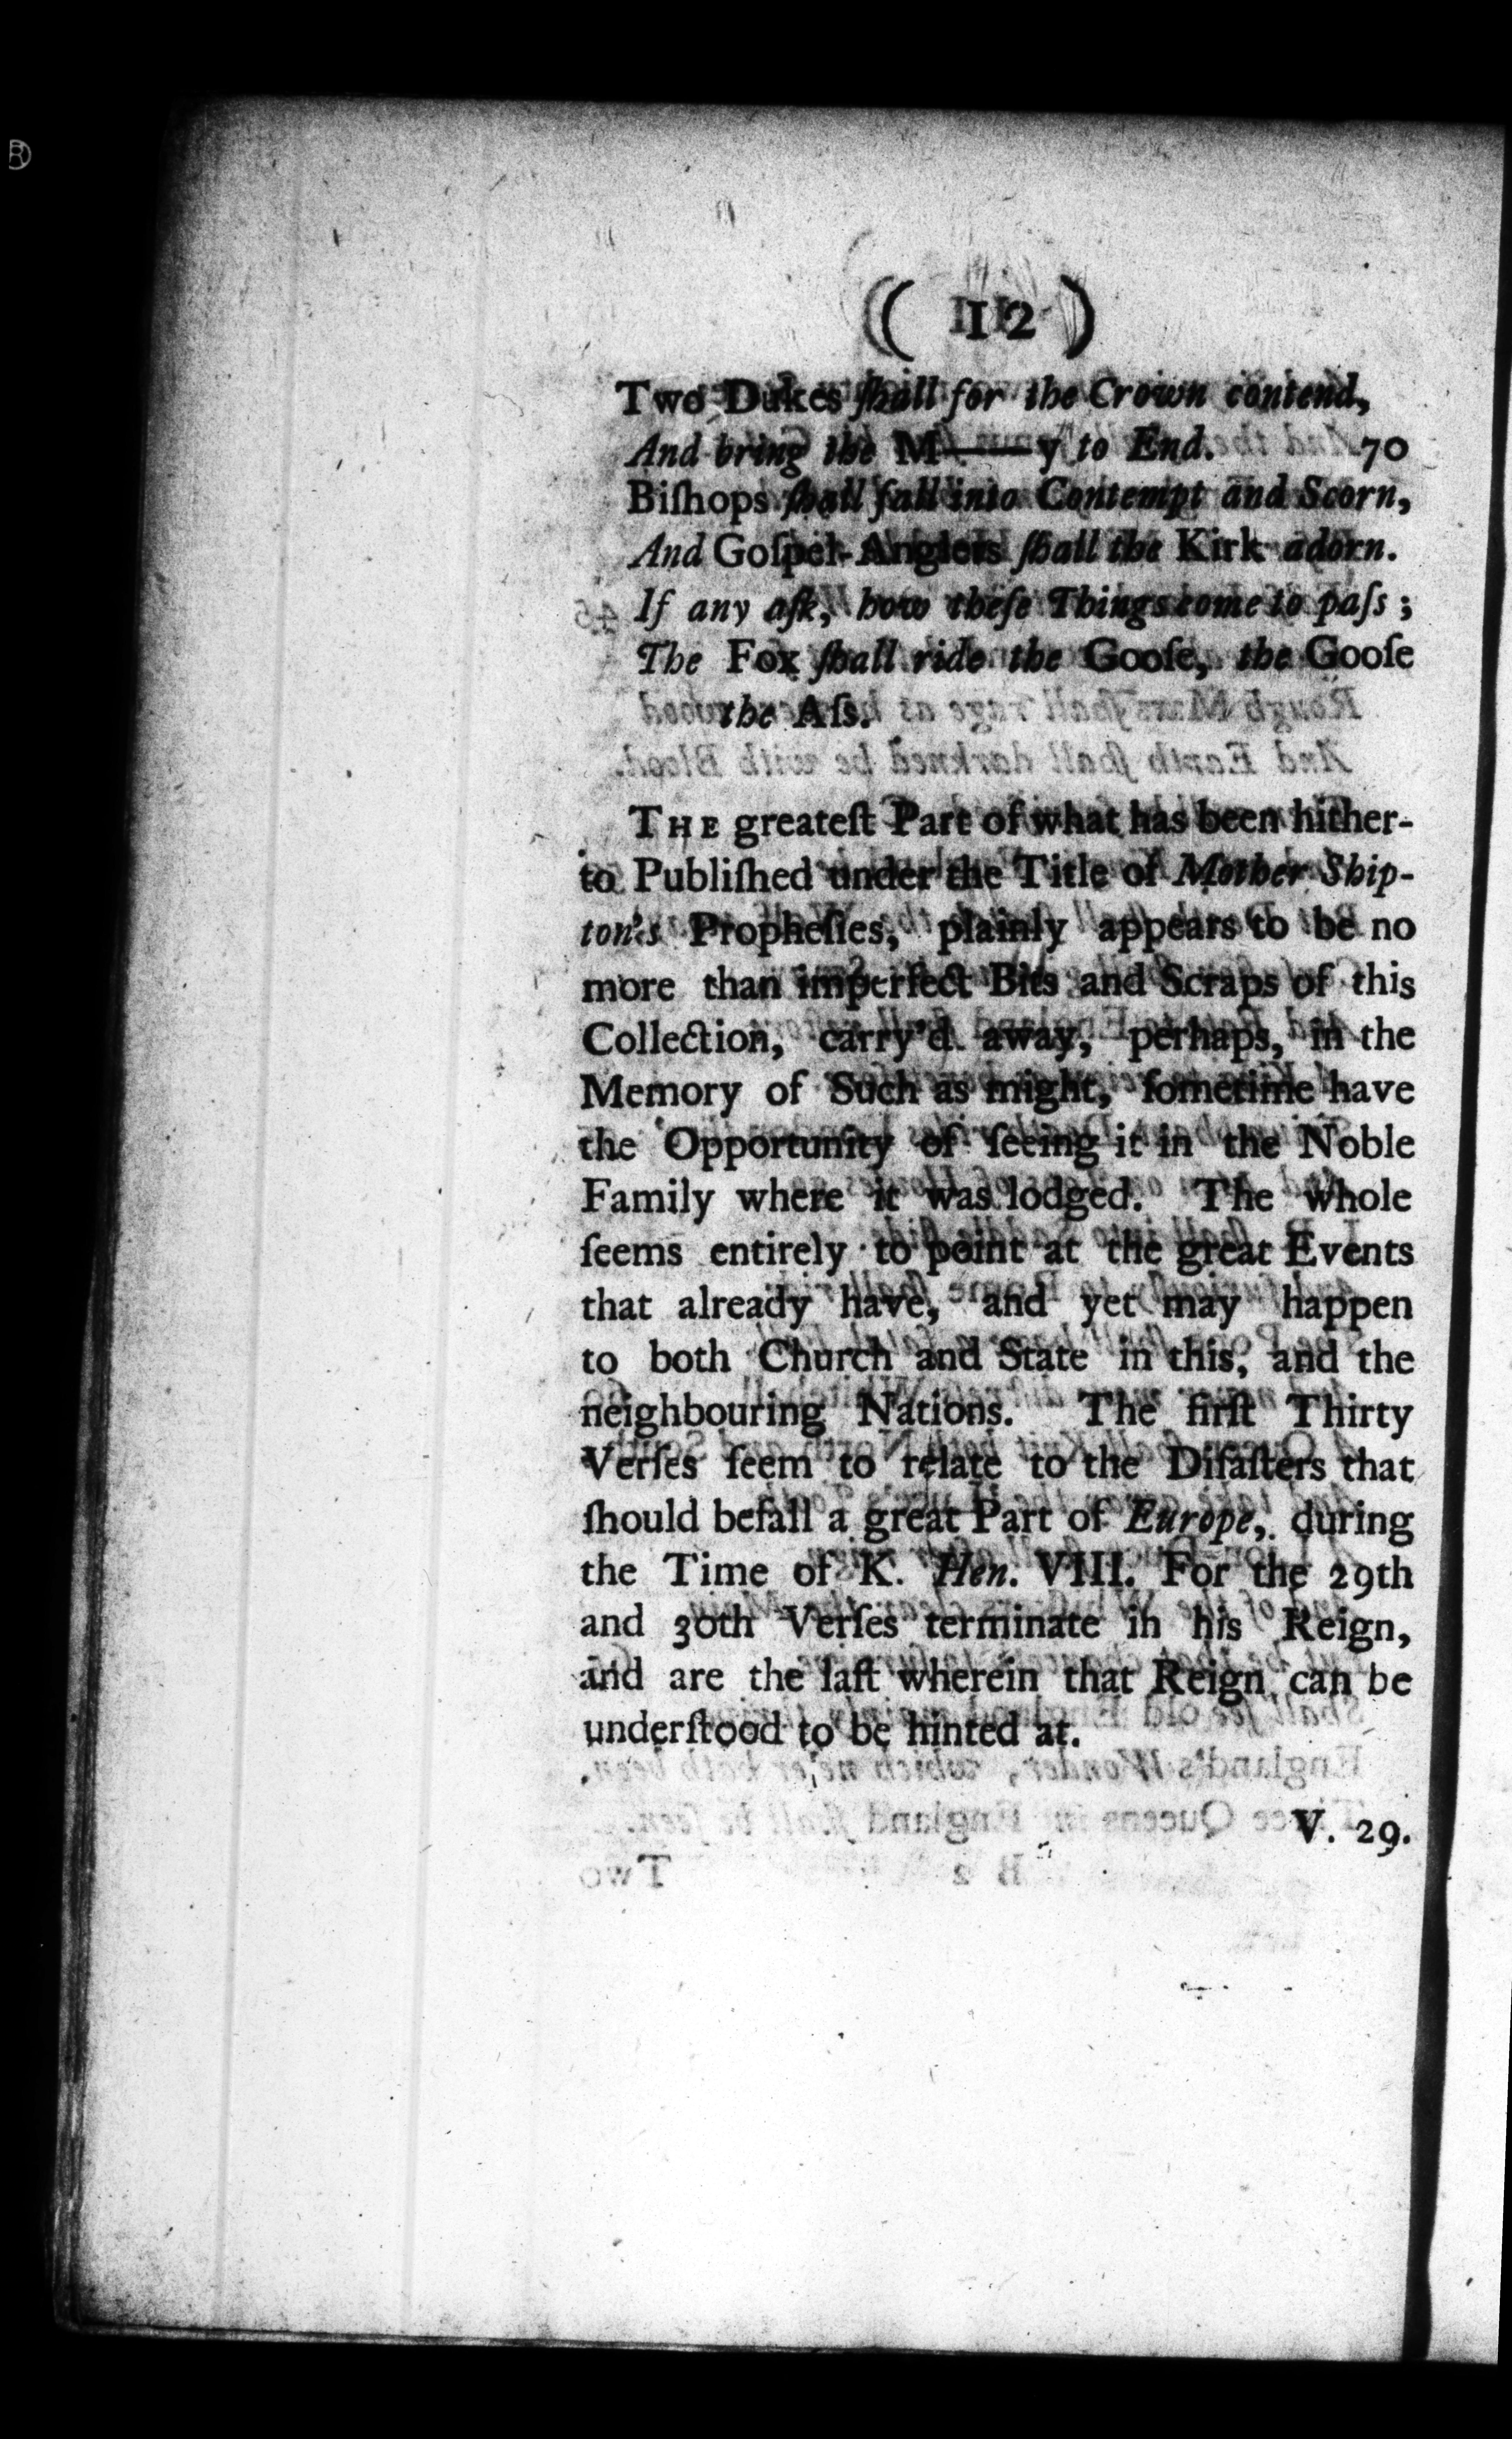 ( 12 )
Two Dukes ſhall for the Crown contend,
And bring the M——y to End. 70
Biſhops ſhall fall into Contempt and Scorn,
And Goſpel-Anglers ſhall the Kirk adorn.
If any aſk, how theſe Things come to paſs;
The Fox ſhall ride the Gooſe, the Gooſe
the Aſs.
THE greateſt Part of what has been hither-
to Publiſhed under the Title of Mother Ship-
ton's Propheſies, plainly appears to be no
more than imperfect Bits and Scraps of this
Collection, carry'd away, perhaps, in the
Memory of Such as might, ſometime have
the Opportunity of ſeeing it in the Noble
Family where it was lodged. The whole
ſeems entirely to point at the great Events
that already have, and yet may happen
to both Church and State in this, and the
neighbouring Nations. The firſt Thirty
Verſes ſeem to relate to the Diſaſters that
ſhould befall a great Part of Europe, during
the Time of K. Hen. VIII. For the 29th
and 30th Verſes terminate in his Reign,
and are the laſt wherein that Reign can be
underſtood to be hinted at.
V. 29.